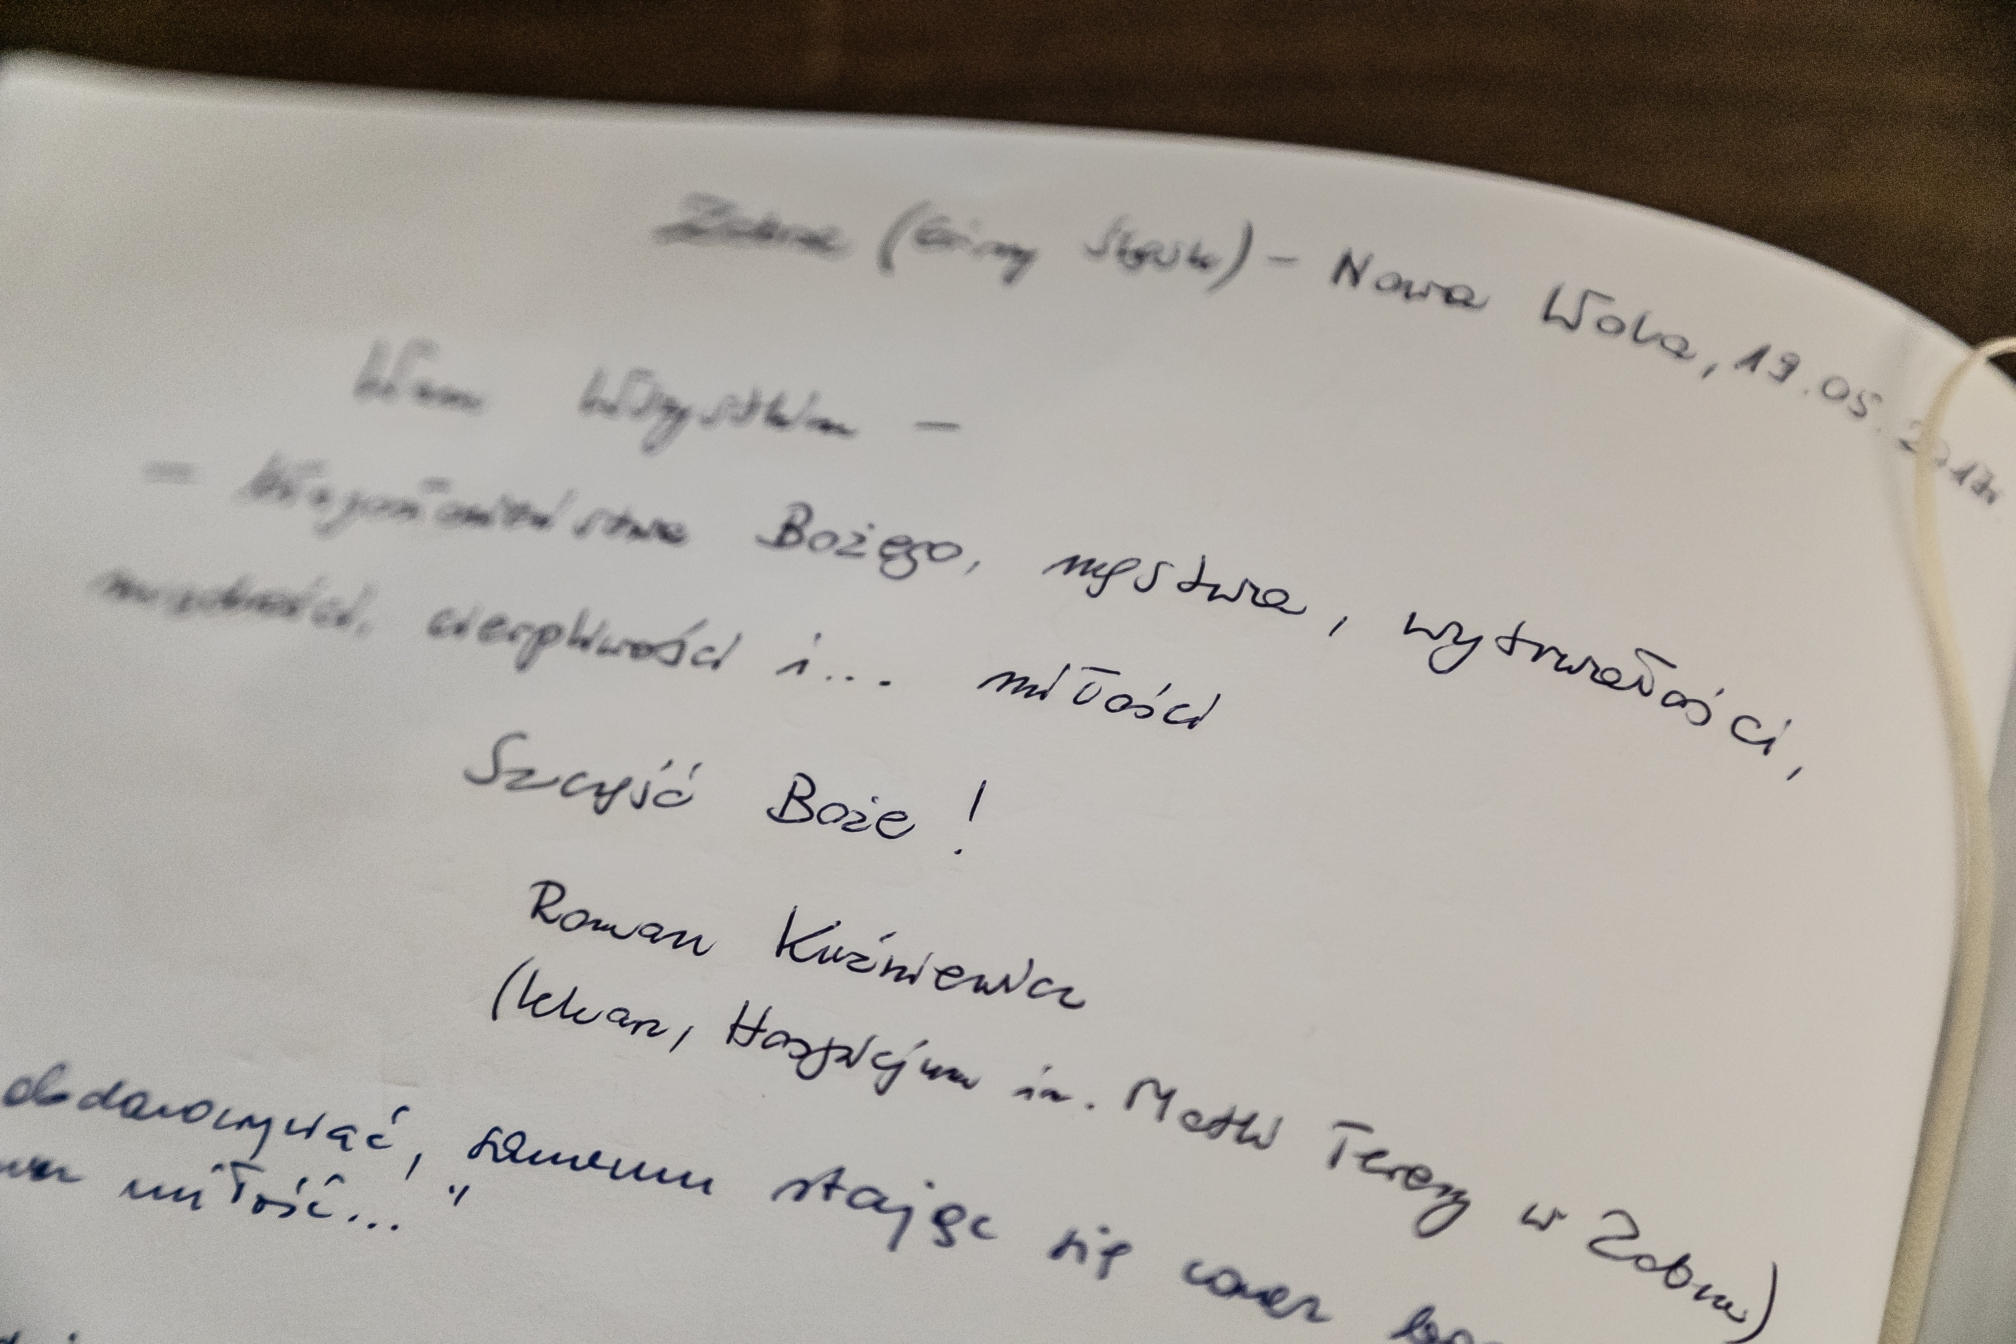 Zabrze (Górny Śląsk) – Nowa Wola, 19.05.2017r
Wam Wszystkim –
– Błogosławieństwa Bożego, męstwa, wytrwałości,
mądrości, cierpliwości i... miłości
Szczęść Boże!
Roman Kuźniewicz
(lekarz, Hospicjum im. Matki Teresy w Zabrzu)
obdarowywać, samemu stając się coraz
miłość..."